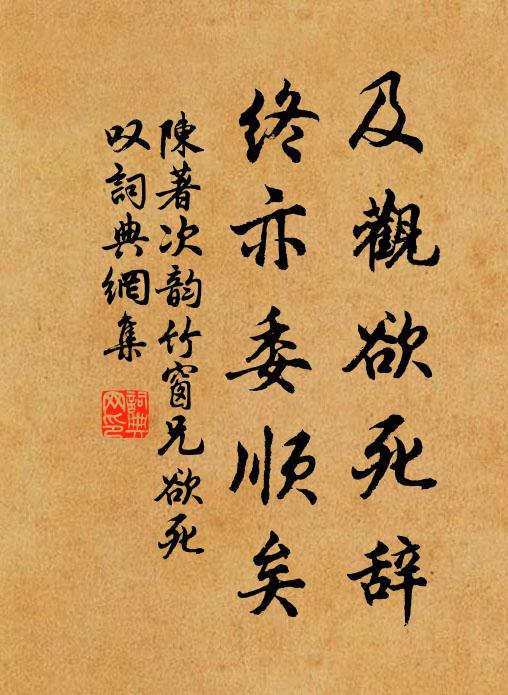 及觀欲死辞
終亦委顺矣
陳著次韵竹窗兄欲死
叹詞典網集
詞典網印